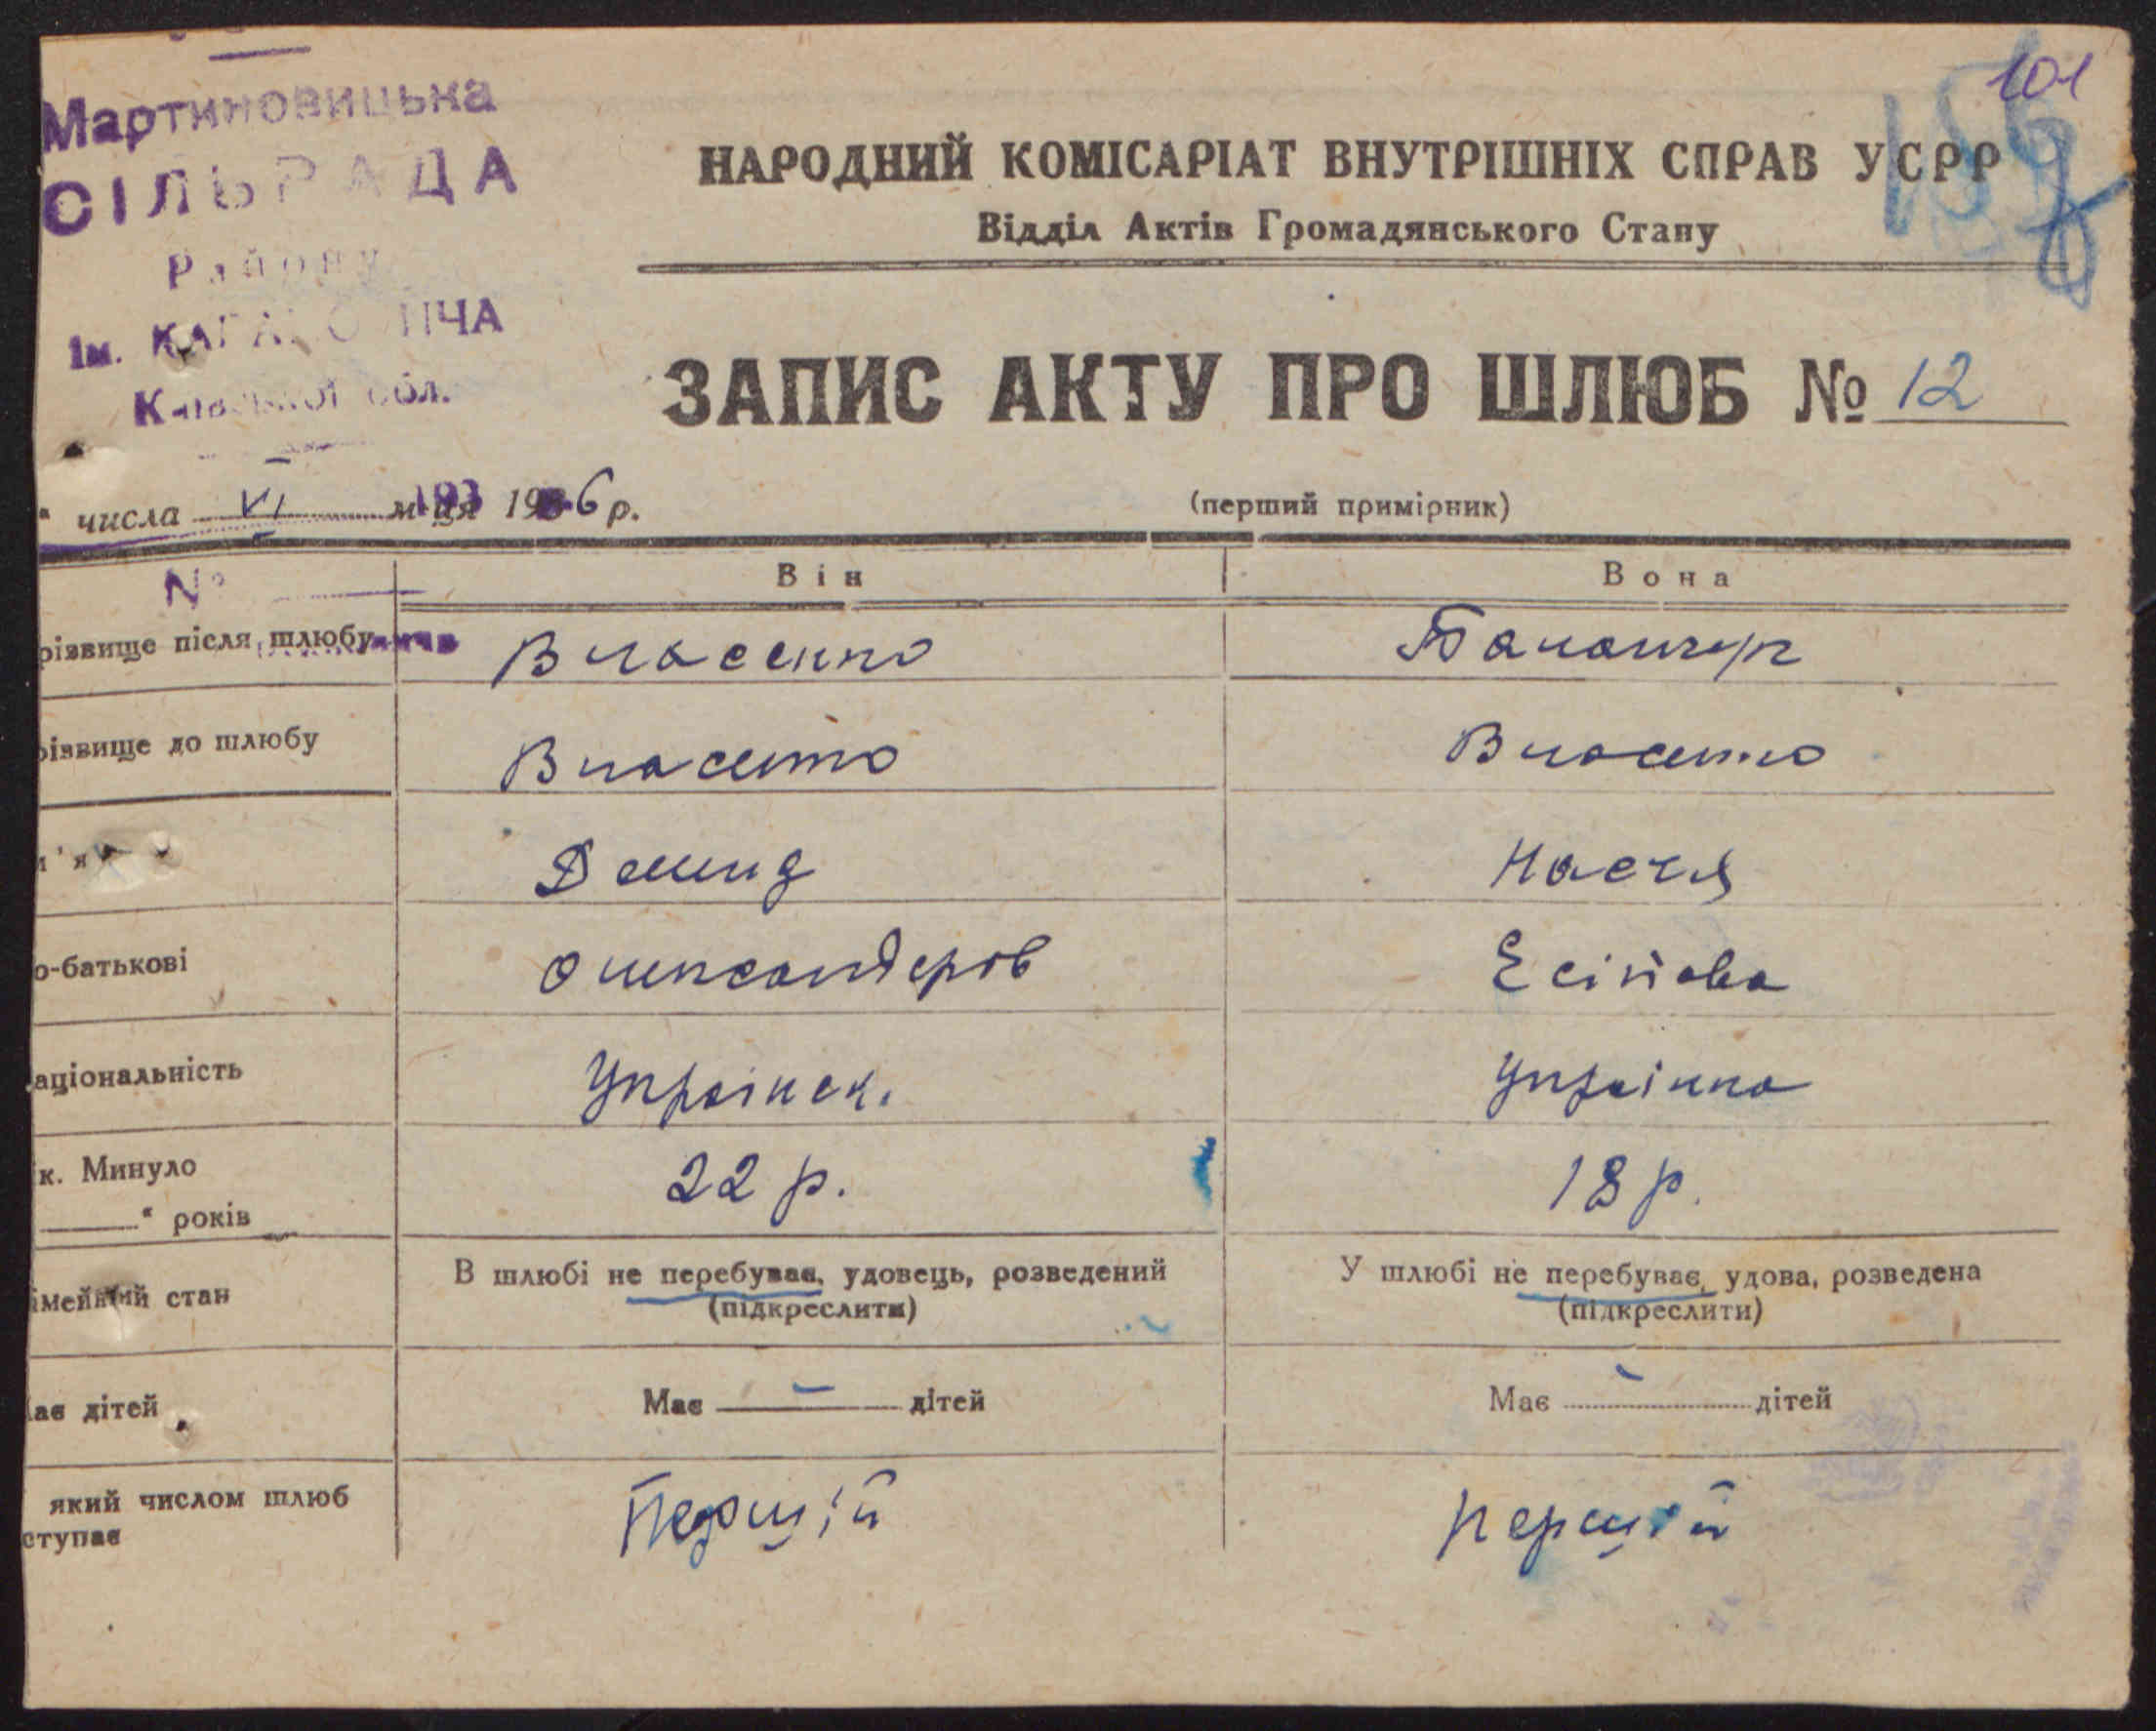 101
Мартиновицька
СІЛЬРАДА
Району
Ім. КАГАНОВИЧА
Київської обл.
НАРОДНИЙ КОМІСАРІАТ ВНУТРІШНІХ СПРАВ УСРР
Відділ Актів Громадянського Стану
ЗАПИС АКТУ ПРО ШЛЮБ № 12
числа VI м-ця 1936 р.
(перший примірник)
№
Він Вона
різвище після шлюбу Власенко
різвище до шлюбу Власенко Власенко
м'я Демид Настя
о-батькові Олександеров Есіпова
аціональність Українск. Українка
к. Минуло
“ років 22 р. 18 р.
імейний стан В шлюбі не перебуває, удовець, розведений У шлюбі не перебуває, удова, розведена
(підкреслити) (підкреслити)
ає дітей Має – дітей Має – дітей
який числом шлюб
ступає Першій першій